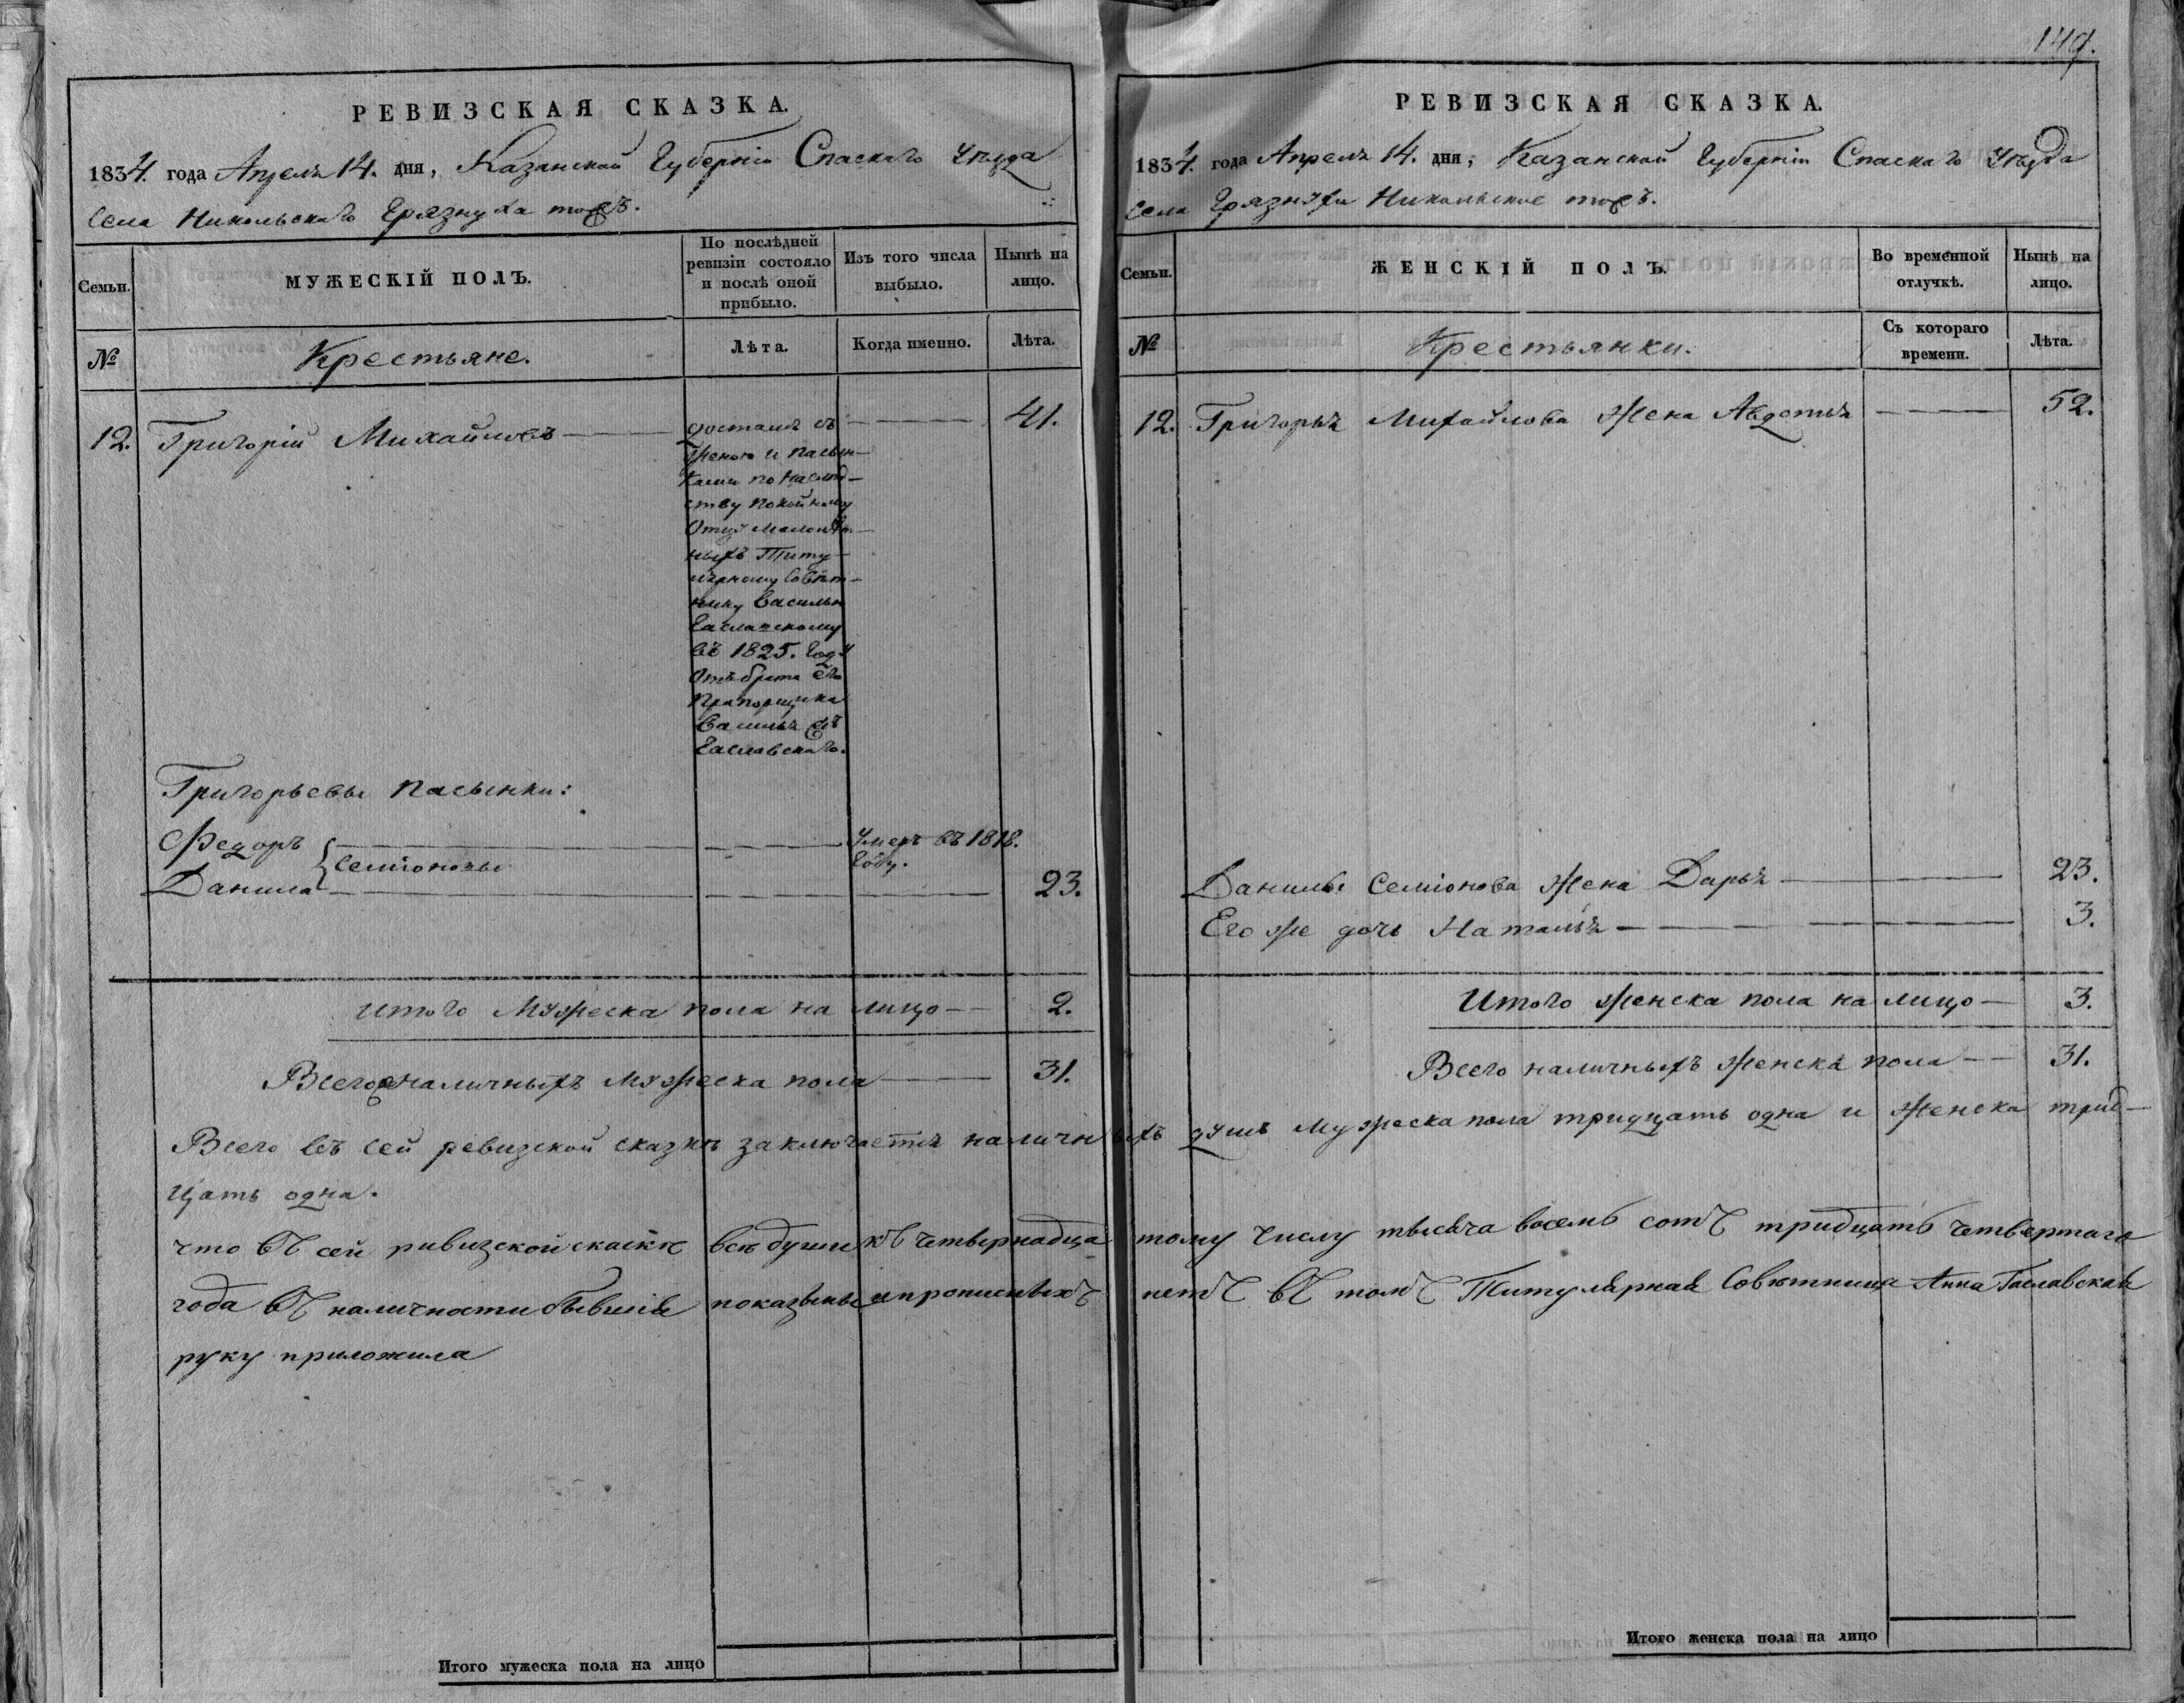 РЕВИЗСКАЯ СКАЗКА.
1834. года Апреля 14. дня, Казанской Губерніи Спаскаго Уѣзда
Села Никольскаго Грязнуха тожъ.
Семьи.
МУЖЕСКІЙ ПОЛЪ.
По послѣдней
ревизіи состояло
и послѣ оной
прибыло.
Изъ того числа
выбыло.
Нынѣ на
лицо.
№
Крестьяне.
Лѣта.
Когда именно.
Лѣта.
12. Григорій Михайловъ 41.
достался съ
женою и пасын-
ками по наслѣд-
ству покойному
Отцу малолѣт-
ныхъ Титу-
лярному Совѣт-
нику Василью
въ 1825. Году
Отъ брата его
Прапорщика
Гаславскаго.
Григорьевы пасынки:
Федоръ Умеръ въ 1818.
Году.
Семіоновы
Данила 23.
Итого Мужеска пола на лицо 2.
Всего наличныхъ Мужеска пола 31.
149.
РЕВИЗСКАЯ СКАЗКА.
1834. года Апреля 14. дня, Казанской Губерніи Спаскаго Уѣзда
Села Грязнухи Никольское тожъ.
Семьи.
ЖЕНСКІЙ ПОЛЪ.
Во временной
отлучкѣ.
Нынѣ на
лицо.
№
Крестьянки.
Съ котораго
времени.
Лѣта.
12. Григорья Михайлова жена Авдотья 52.
Данилы Семіонова жена Дарья 23.
Его же дочь Наталья 3.
Итого женска пола на лицо 3.
Всего наличныхъ женска пола 31.
Всего въ сей ревизской сказкѣ заключается наличныхъ душъ мужеска пола тридцать одна и женска трид-
цать одна.
что въ сей ривизской скаске все души къ четырнадцатому числу тысяча восемь сотъ тридцать четвертаго
года въ наличности бывшія показаны и прописныхъ нетъ въ томъ Титулярная Советница Анна Гаславская
руку приложила
Итого мужеска пола на лицо
Итого женска пола на лицо